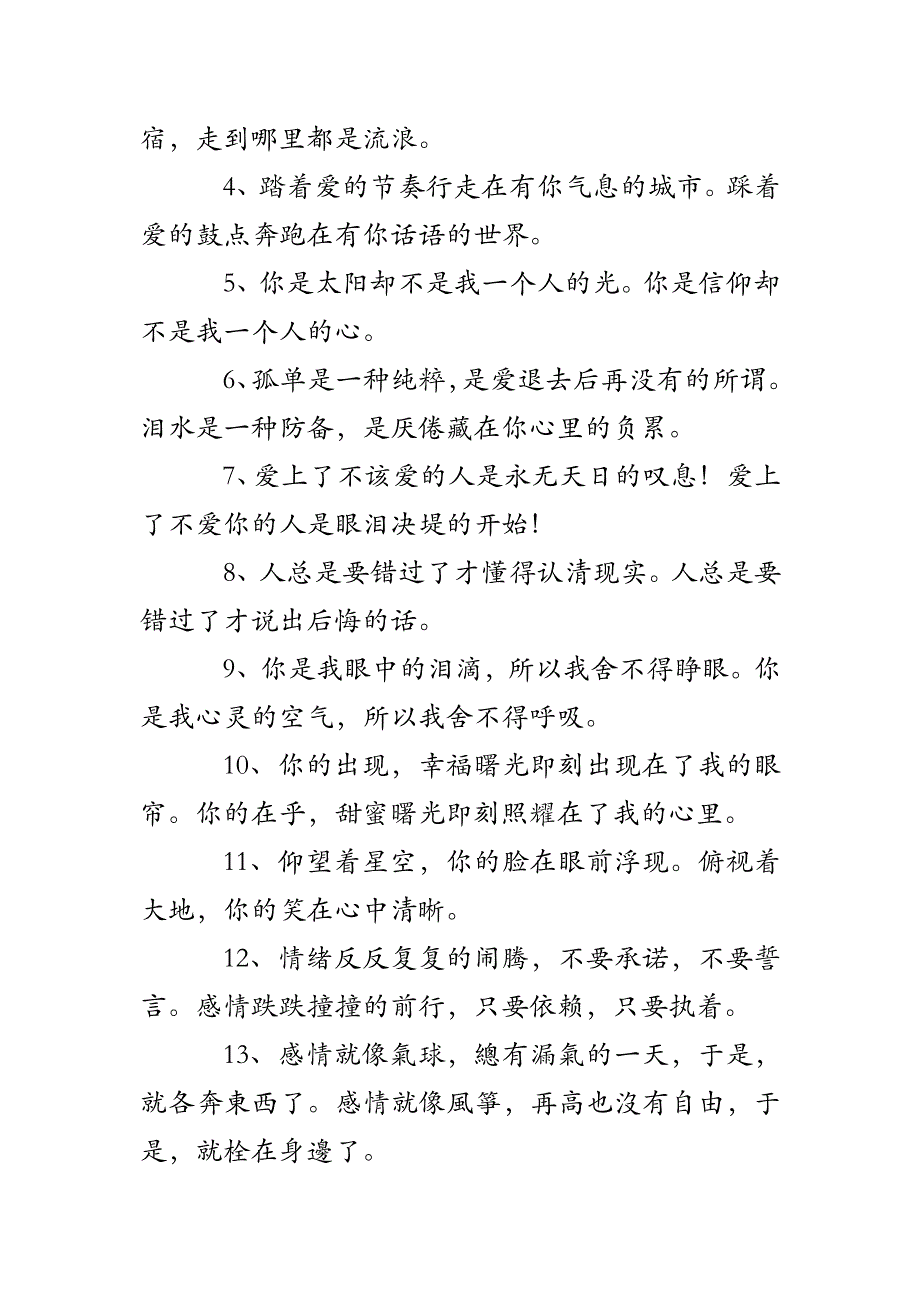 宿，走到哪里都是流浪。
4、踏着爱的节奏行走在有你气息的城市。踩着
爱的鼓点奔跑在有你话语的世界。
5、你是太阳却不是我一个人的光。你是信仰却
不是我一个人的心。
6、孤单是一种纯粹，是爱退去后再没有的所谓。
泪水是一种防备，是厌倦藏在你心里的负累。
7、爱上了不该爱的人是永无天日的叹息！爱上
了不爱你的人是眼泪决堤的开始！
8、人总是要错过了才懂得认清现实。人总是要
错过了才说出后悔的话。
9、你是我眼中的泪滴，所以我舍不得睁眼。你
是我心灵的空气，所以我舍不得呼吸。
10、你的出现，幸福曙光即刻出现在了我的眼
帘。你的在乎，甜蜜曙光即刻照耀在了我的心里。
11、仰望着星空，你的脸在眼前浮现。俯视着
大地，你的笑在心中清晰。
12、情绪反反复复的闹腾，不要承诺，不要誓
言。感情跌跌撞撞的前行，只要依赖，只要执着。
13、感情就像氣球，總有漏氣的一天，于是，
就各奔東西了。感情就像風箏，再高也沒有自由，于
是，就栓在身邊了。